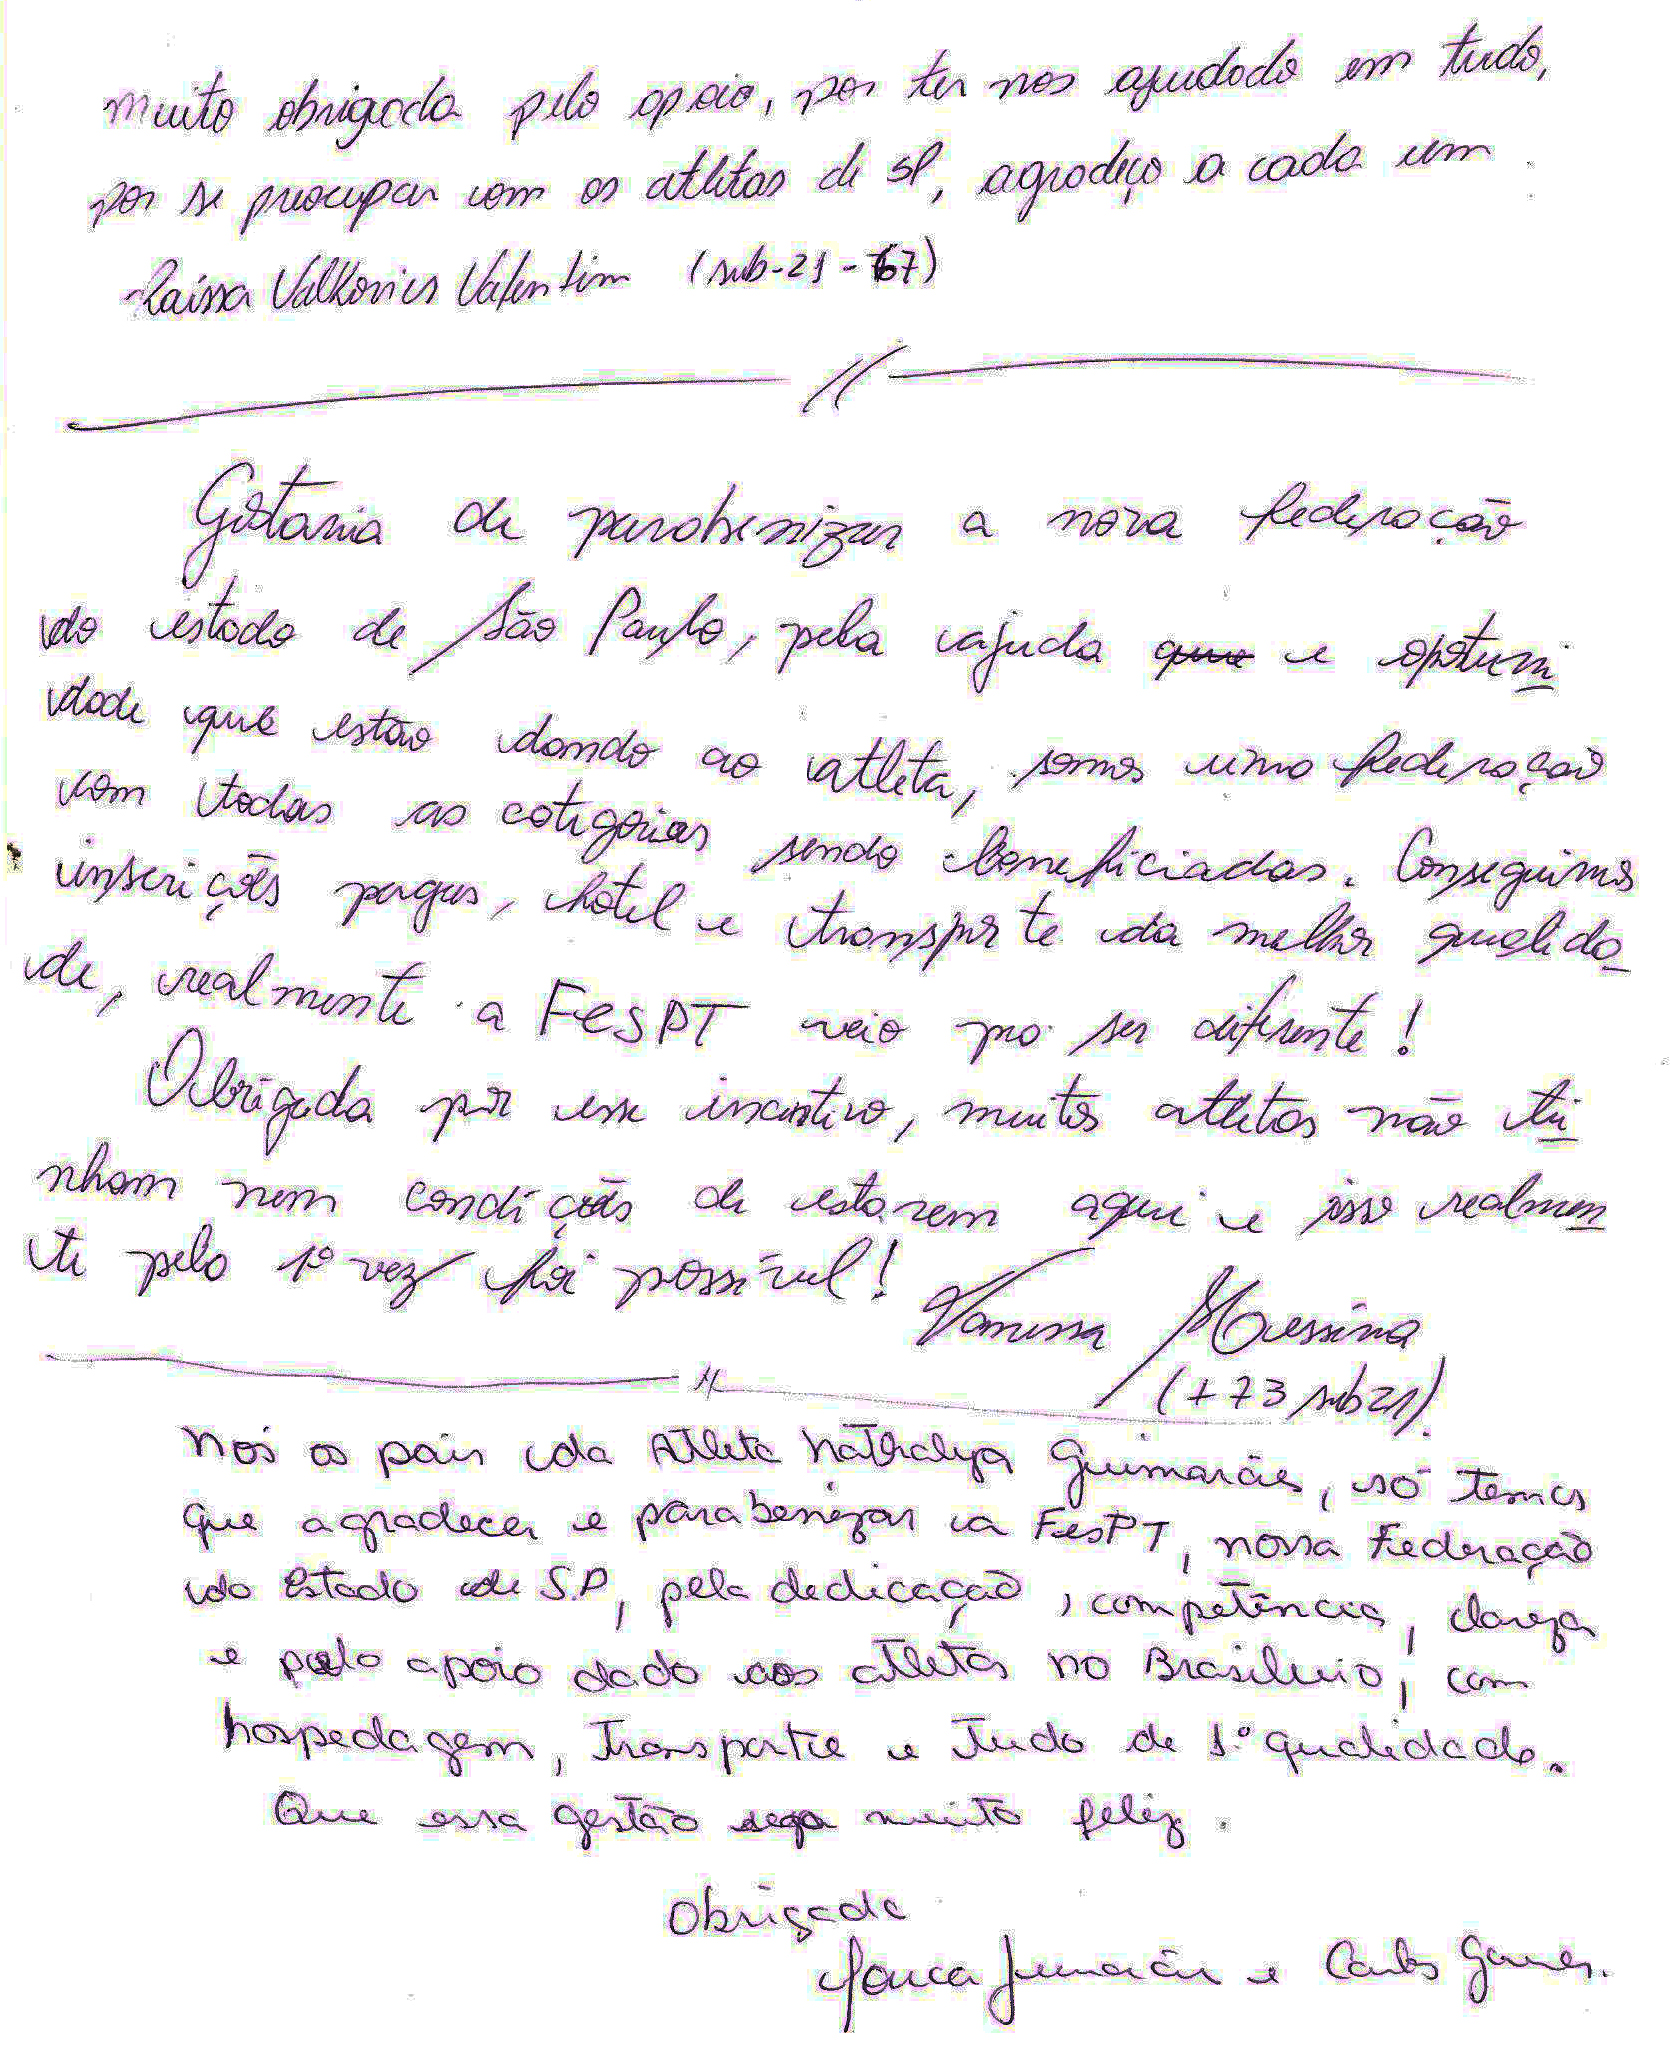 muito obrigada pelo apoio, por ter nos ajudado em tudo,
por se preocupar com os atletas de SP, agradeço a cada um
Raissa Valkovics Valentim (sub-21 - 67)
Gostaria de parabenizar a nova federação
do estado de São Paulo, pela ajuda que e opotuni
dade que estão dando ao atleta, somos uma federação
com todas as categorias sendo beneficiadas. Conseguimos
inscrições pagas, hotel e transporte da melhor qualida_
de, realmente a FesPT veio pra ser diferente!
Obrigada por esse incentivo, muitos atletas não ti
nham nem condições de estarem aqui e isso realmen
te pela 1ª vez foi possível! Vanessa Messina
(+73 sub21).
Nós os pais da Atleta Nathalya Guimarães, só temos
que agradecer e parabenizar a FesPT, nossa Federação
do Estado de S.P, pela dedicação, competência, clareza
e pelo apoio dado aos atletas no Brasileiro, com
hospedagem, Transporte e Tudo de 1ª qualidade.
Que essa gestão seja muito feliz.
Obrigada
Guimarães e Carlos